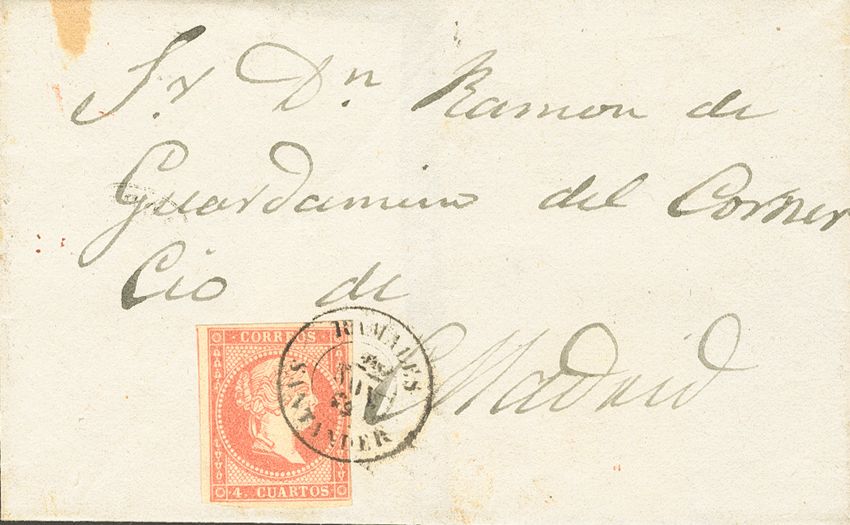 Sr. Dn. Ramon de
Guardamino del Comer
cio de
Madrid
CORREOS
4 CUARTOS
RAMALES
SANTANDER